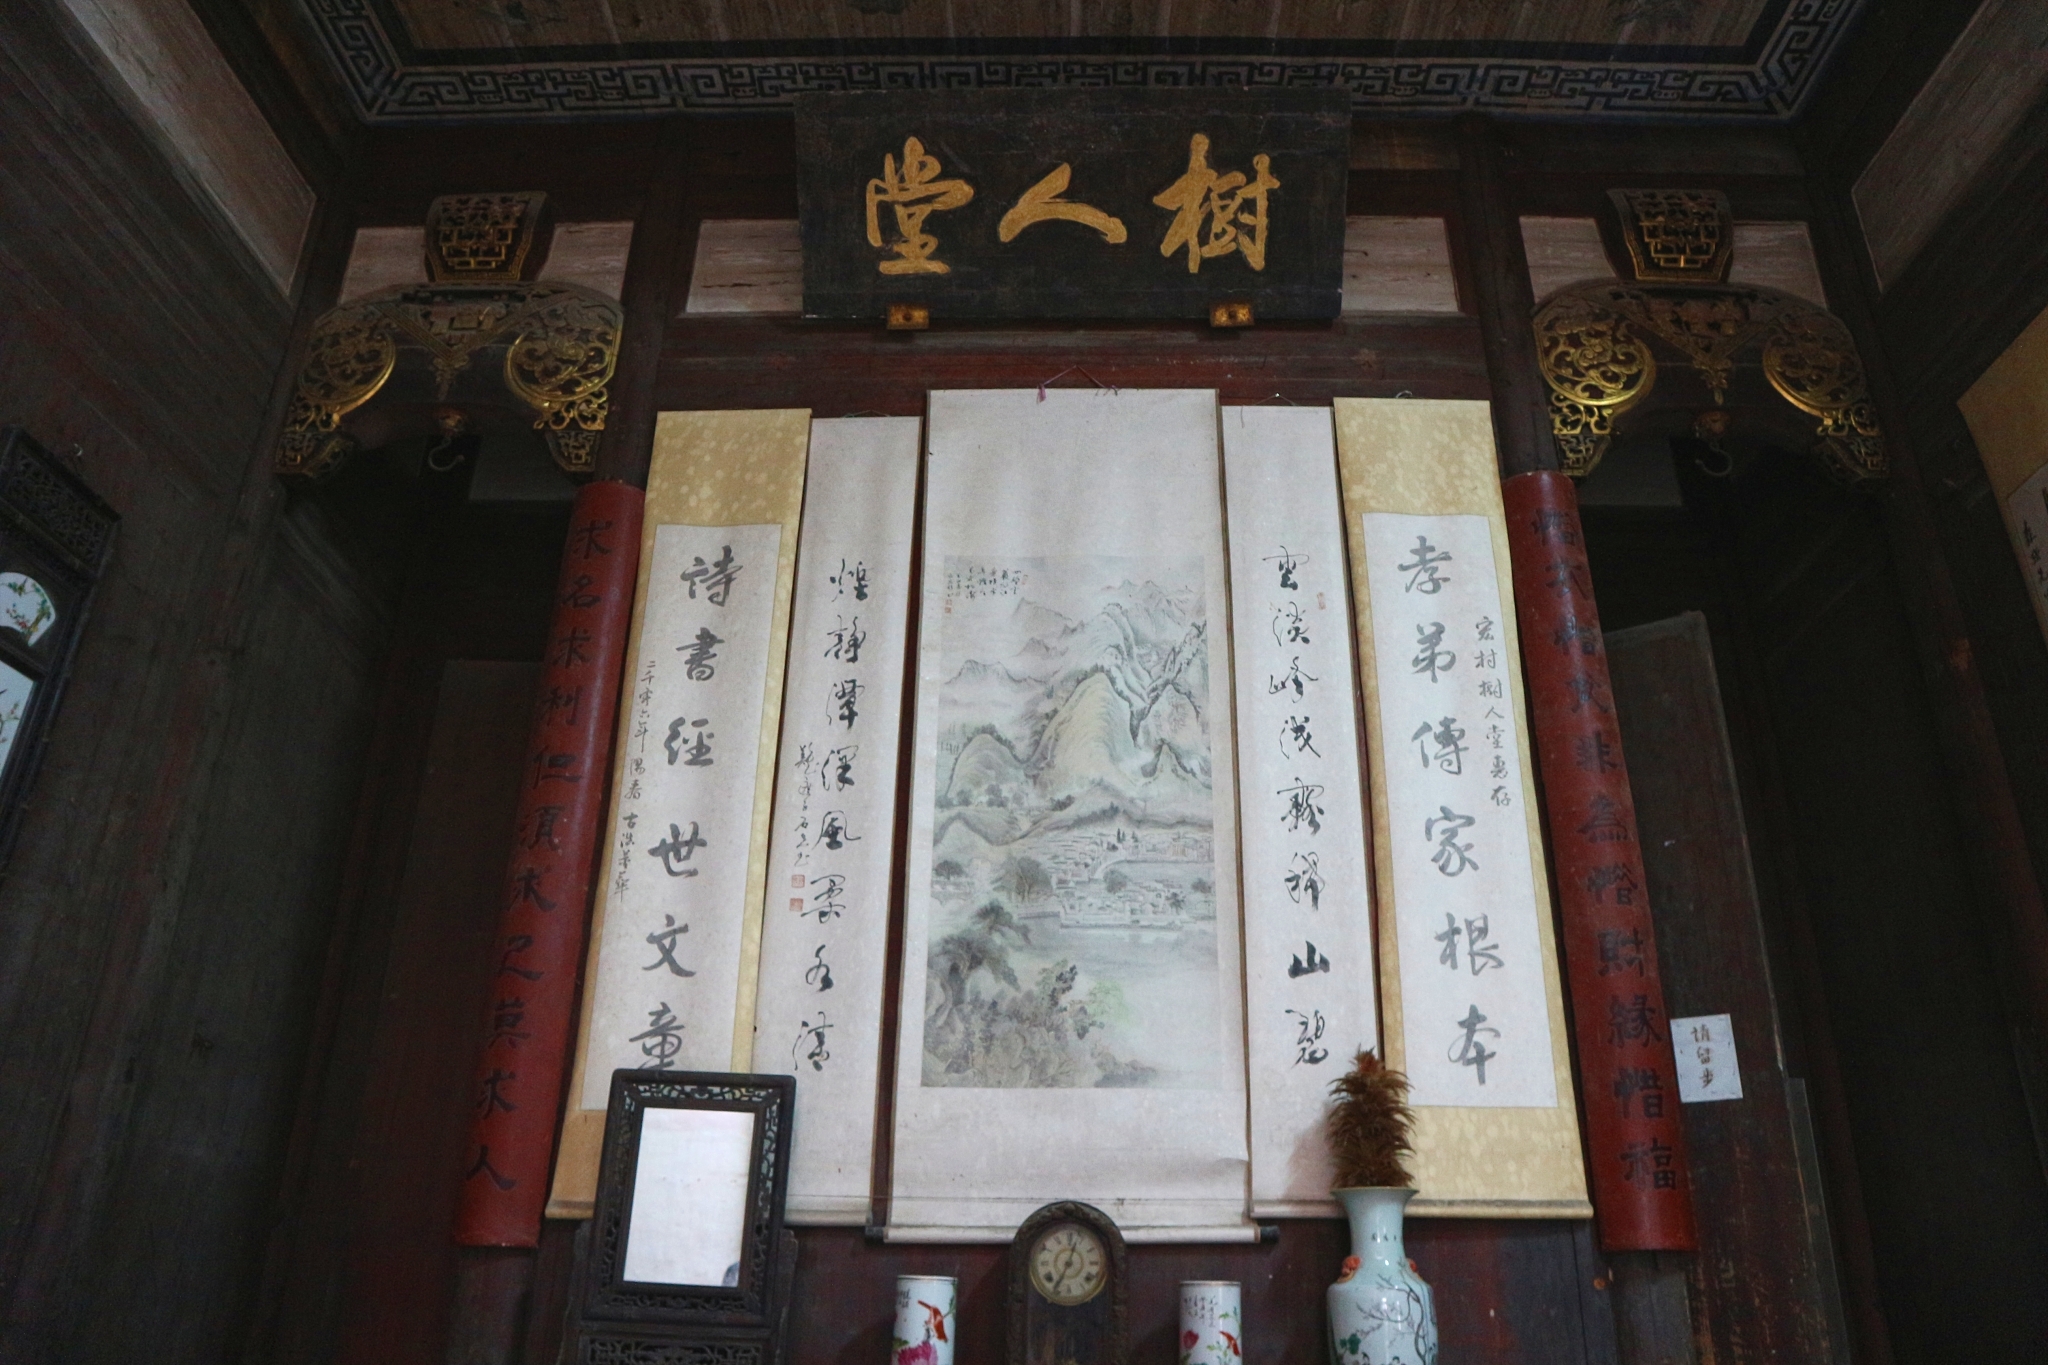 樹人堂
惜衣惜食非為惜財緣惜福
宏村樹人堂惠存
孝弟傳家根本
雲淡峰浅霧歸山碧
煌靜潭深風柔水清
詩書經世文章
二千零六年
求名求利但須求己莫求人
請留步